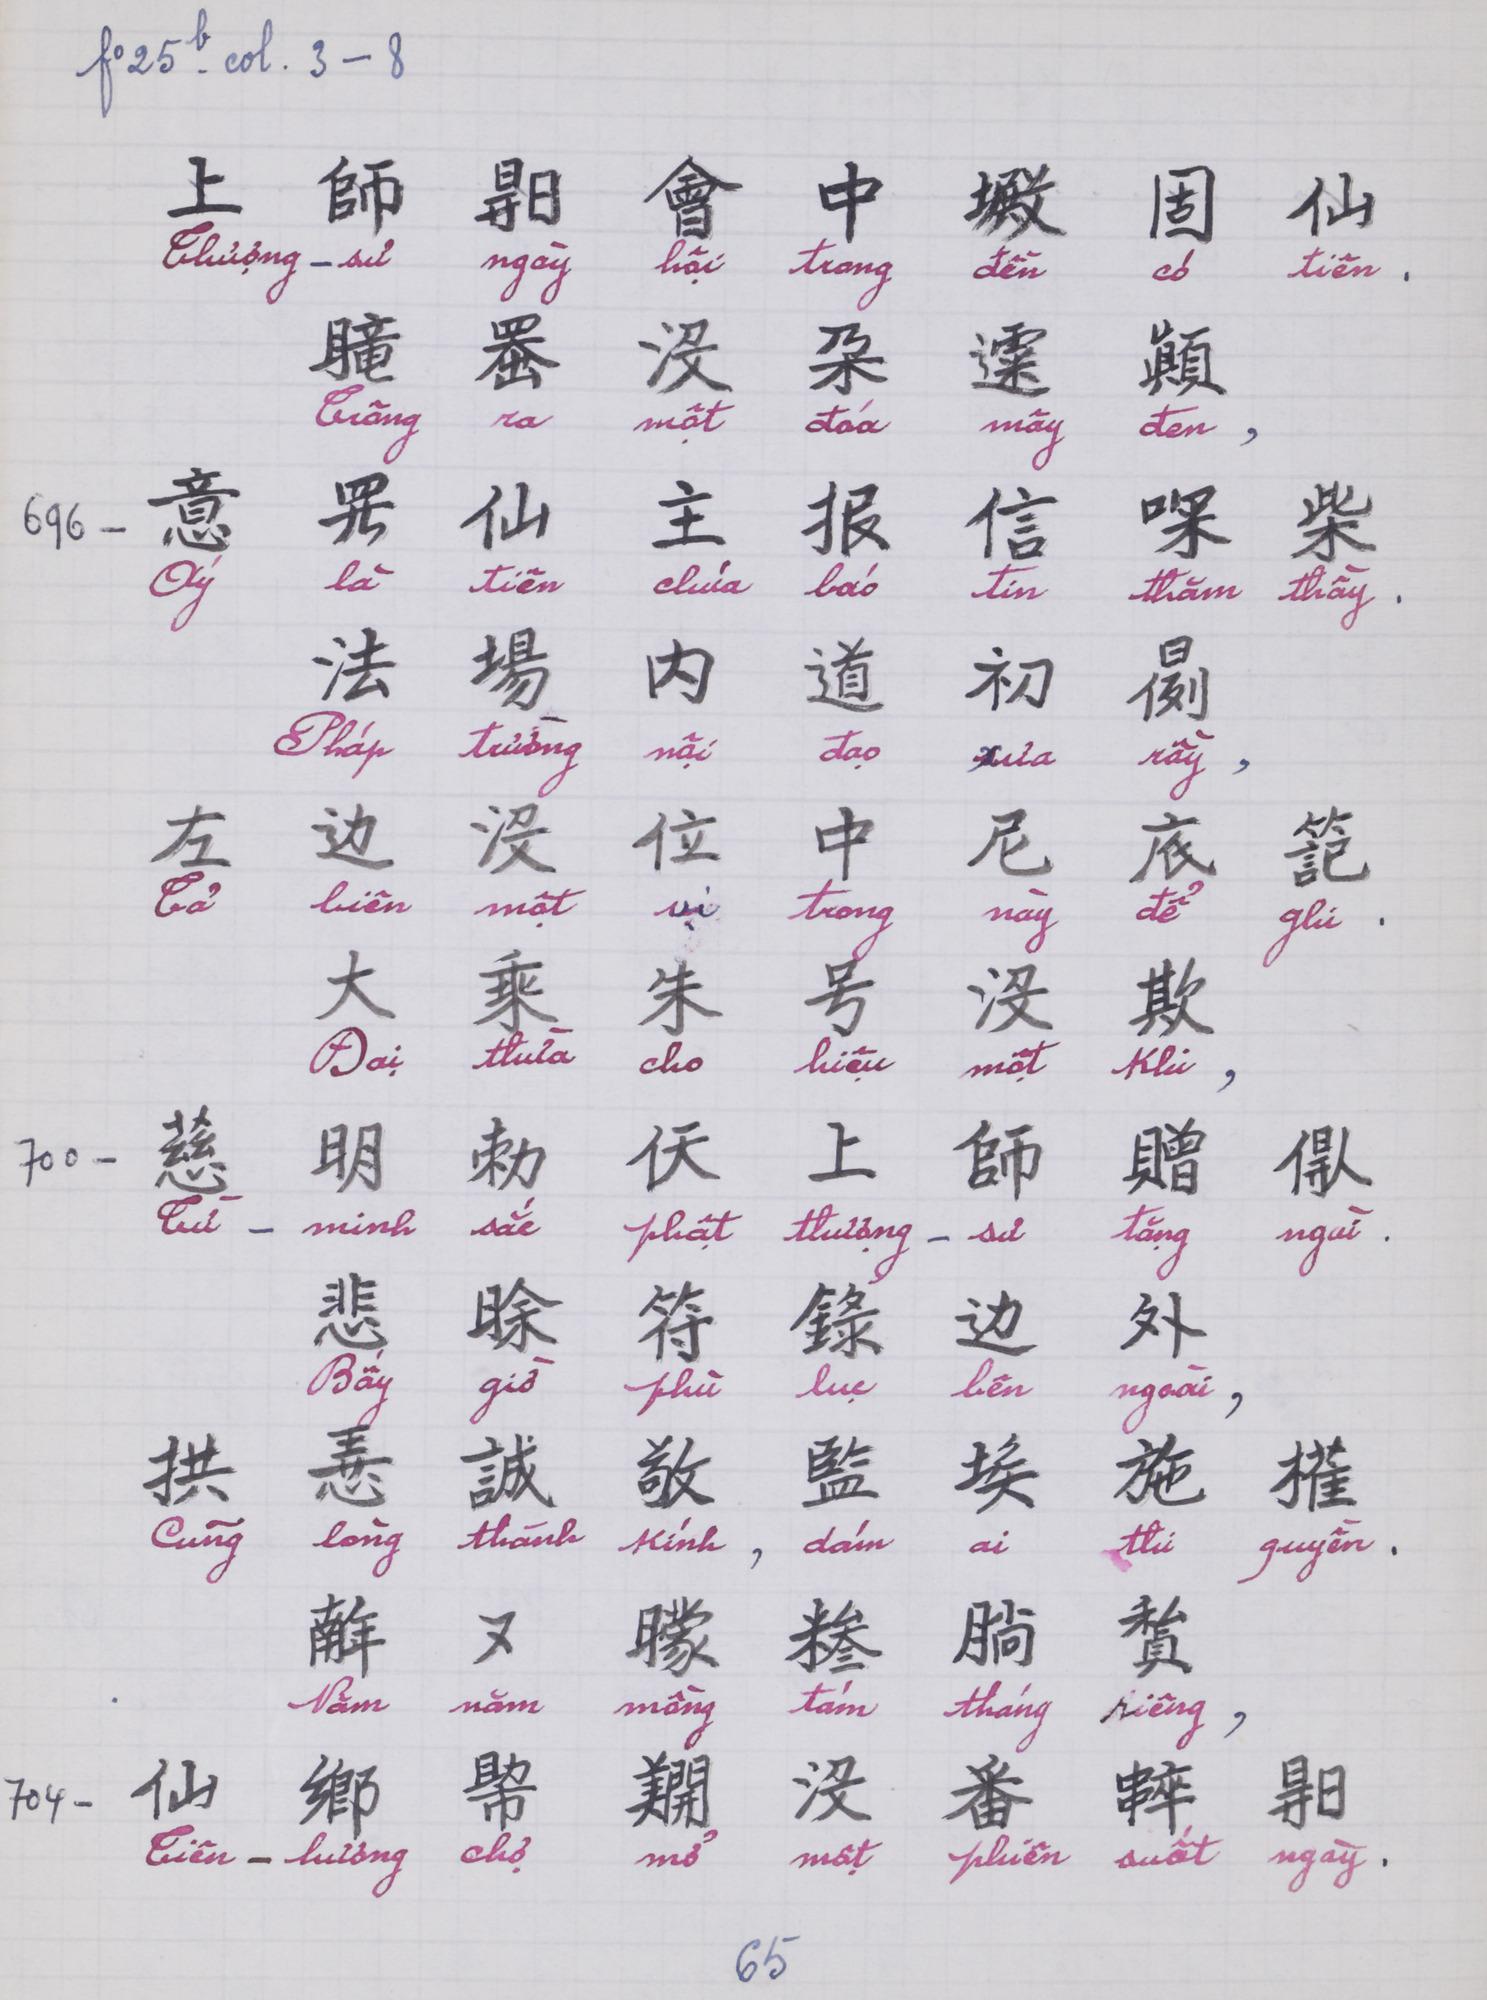 fº 25ᵇ. col. 3 – 8
上 師 𣈗 會 中 殿 固 仙
Thượng – sư ngày hội trong đền có tiên .
𦊛 沒 朶 䨺 顛
Trăng ra một đóa mây đen ,
696 – 意 𪜀 仙 主 报 信 𠶀 柴
Ấy là tiên chúa báo tin thăm thầy .
法 場 内 道 初
Pháp trường nội đạo xưa rầy ,
左 边 沒 位 中 尼 底 䛋
Tả biên một vị trong này để ghi .
大 乘 朱 号 沒 欺
Đại thừa cho hiệu một khi ,
700 – 慈 明 勅 仸 上 師 贈 𠊚
Từ – minh sắc phật thượng – sư tặng ngài .
悲 𪰛 符 錄 边 外
Bấy giờ phù lục bên ngoài ,
拱 𢚸 誠 敬 監 埃 施 權
Cũng lòng thành kính , dám ai thi quyền .
𢆥 又 𣎃 𠔭 𣎃
Năm năm mồng tám tháng riêng ,
704 – 仙 鄉 𢄂 𨷑 沒 番 𣈗
Tiên – hương chợ mở một phiên suốt ngày .
65